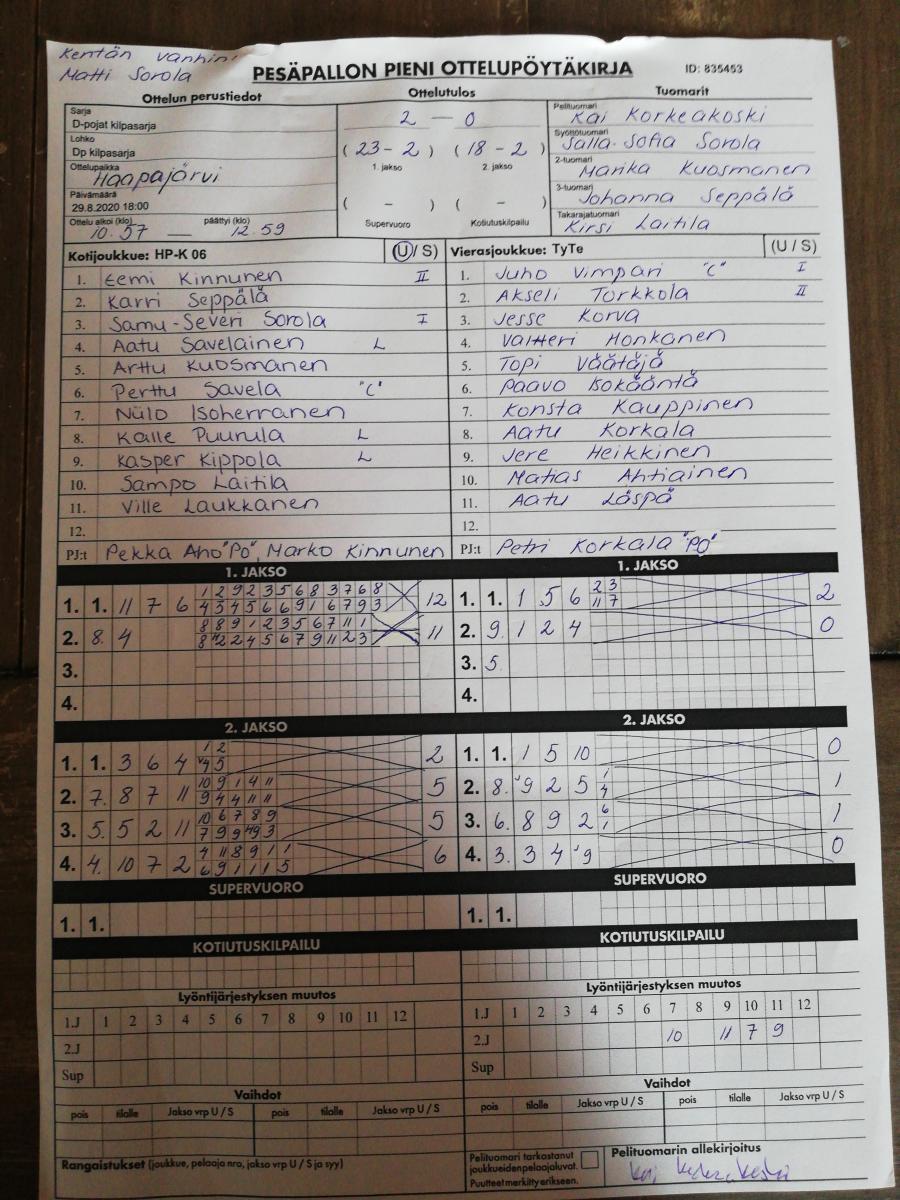 Kentän vanhin
Matti Sorola
PESÄPALLON PIENI OTTELUPÖYTÄKIRJA ID: 835453
Ottelun perustiedot Ottelutulos Tuomarit
Sarja
D-pojat kilpasarja
Lohko
Dp kilpasarja
Ottelupaikka
Haapajärvi
Päivämäärä
29.8.2020 18:00
Ottelu alkoi (klo) päättyi (klo)
10.57 — 12.59
2 — 0
( 23 - 2 ) ( 18 - 2 )
1. jakso 2. jakso
( - ) ( - )
Supervuoro Kotiutuskilpailu
Pelituomari
Kai Korkeakoski
Syöttötuomari
Salla-Sofia Sorola
2-tuomari
Marika Kuosmanen
3-tuomari
Johanna Seppälä
Takarajatuomari
Kirsi Laitila
Kotijoukkue: HP-K 06 (U / S)
1. Eemi Kinnunen II
2. Karri Seppälä
3. Samu-Severi Sorola I
4. Aatu Savelainen L
5. Arttu Kuosmanen
6. Perttu Savela "C"
7. Niilo Isoherranen
8. Kalle Puurula L
9. Kasper Kippola L
10. Sampo Laitila
11. Ville Laukkanen
12.
PJ:t Pekka Aho "PO", Marko Kinnunen
Vierasjoukkue: TyTe (U / S)
1. Juho Vimpari "C" I
2. Akseli Torkkola II
3. Jesse Korva
4. Valtteri Honkanen
5. Topi Väätäjä
6. Paavo Isokääntä
7. Konsta Kauppinen
8. Aatu Korkala
9. Jere Heikkinen
10. Matias Ahtiainen
11. Aatu Läspä
12.
PJ:t Petri Korkala "PO"
1. JAKSO
1. 1. 11 7 6 12
1 2 9 2 3 5 6 8 3 7 6 8
4 5 4 5 6 6 9 1 6 7 9 3
2. 8. 4 11
8 8 9 1 2 3 5 6 7 11 1
3.
4.
1. JAKSO
1. 1. 1 5 6 2
2 3
11 7
2. 9. 1 2 4 0
3. 5.
4.
2. JAKSO
1. 1. 3 6 4 2
1 2
4 5
2. 7. 8 7 11 5
10 9 1 4 11
9 4 4 11 11
3. 5. 5 2 11 5
10 6 7 8 9
4. 4. 10 7 2 6
4 11 8 9 1 1
6 9 1 1 1 5
2. JAKSO
1. 1. 1 5 10 0
2. 8. 9 2 5 1
1
4
3. 6. 8 9 2 1
6
1
4. 3. 3 4 9 0
SUPERVUORO
1. 1.
SUPERVUORO
1. 1.
KOTIUTUSKILPAILU
KOTIUTUSKILPAILU
Lyöntijärjestyksen muutos
1.J 1 2 3 4 5 6 7 8 9 10 11 12
2.J
Sup
Lyöntijärjestyksen muutos
1.J 1 2 3 4 5 6 7 8 9 10 11 12
2.J 10 11 7 9
Sup
Vaihdot
pois tilalle Jakso vrp U / S pois tilalle Jakso vrp U / S
Vaihdot
pois tilalle Jakso vrp U / S pois tilalle Jakso vrp U / S
Rangaistukset (joukkue, pelaaja nro, jakso vrp U / S ja syy)
Pelituomari tarkastanut
joukkueiden pelaajaluvat.
Puutteet merkitty erikseen.
Pelituomarin allekirjoitus